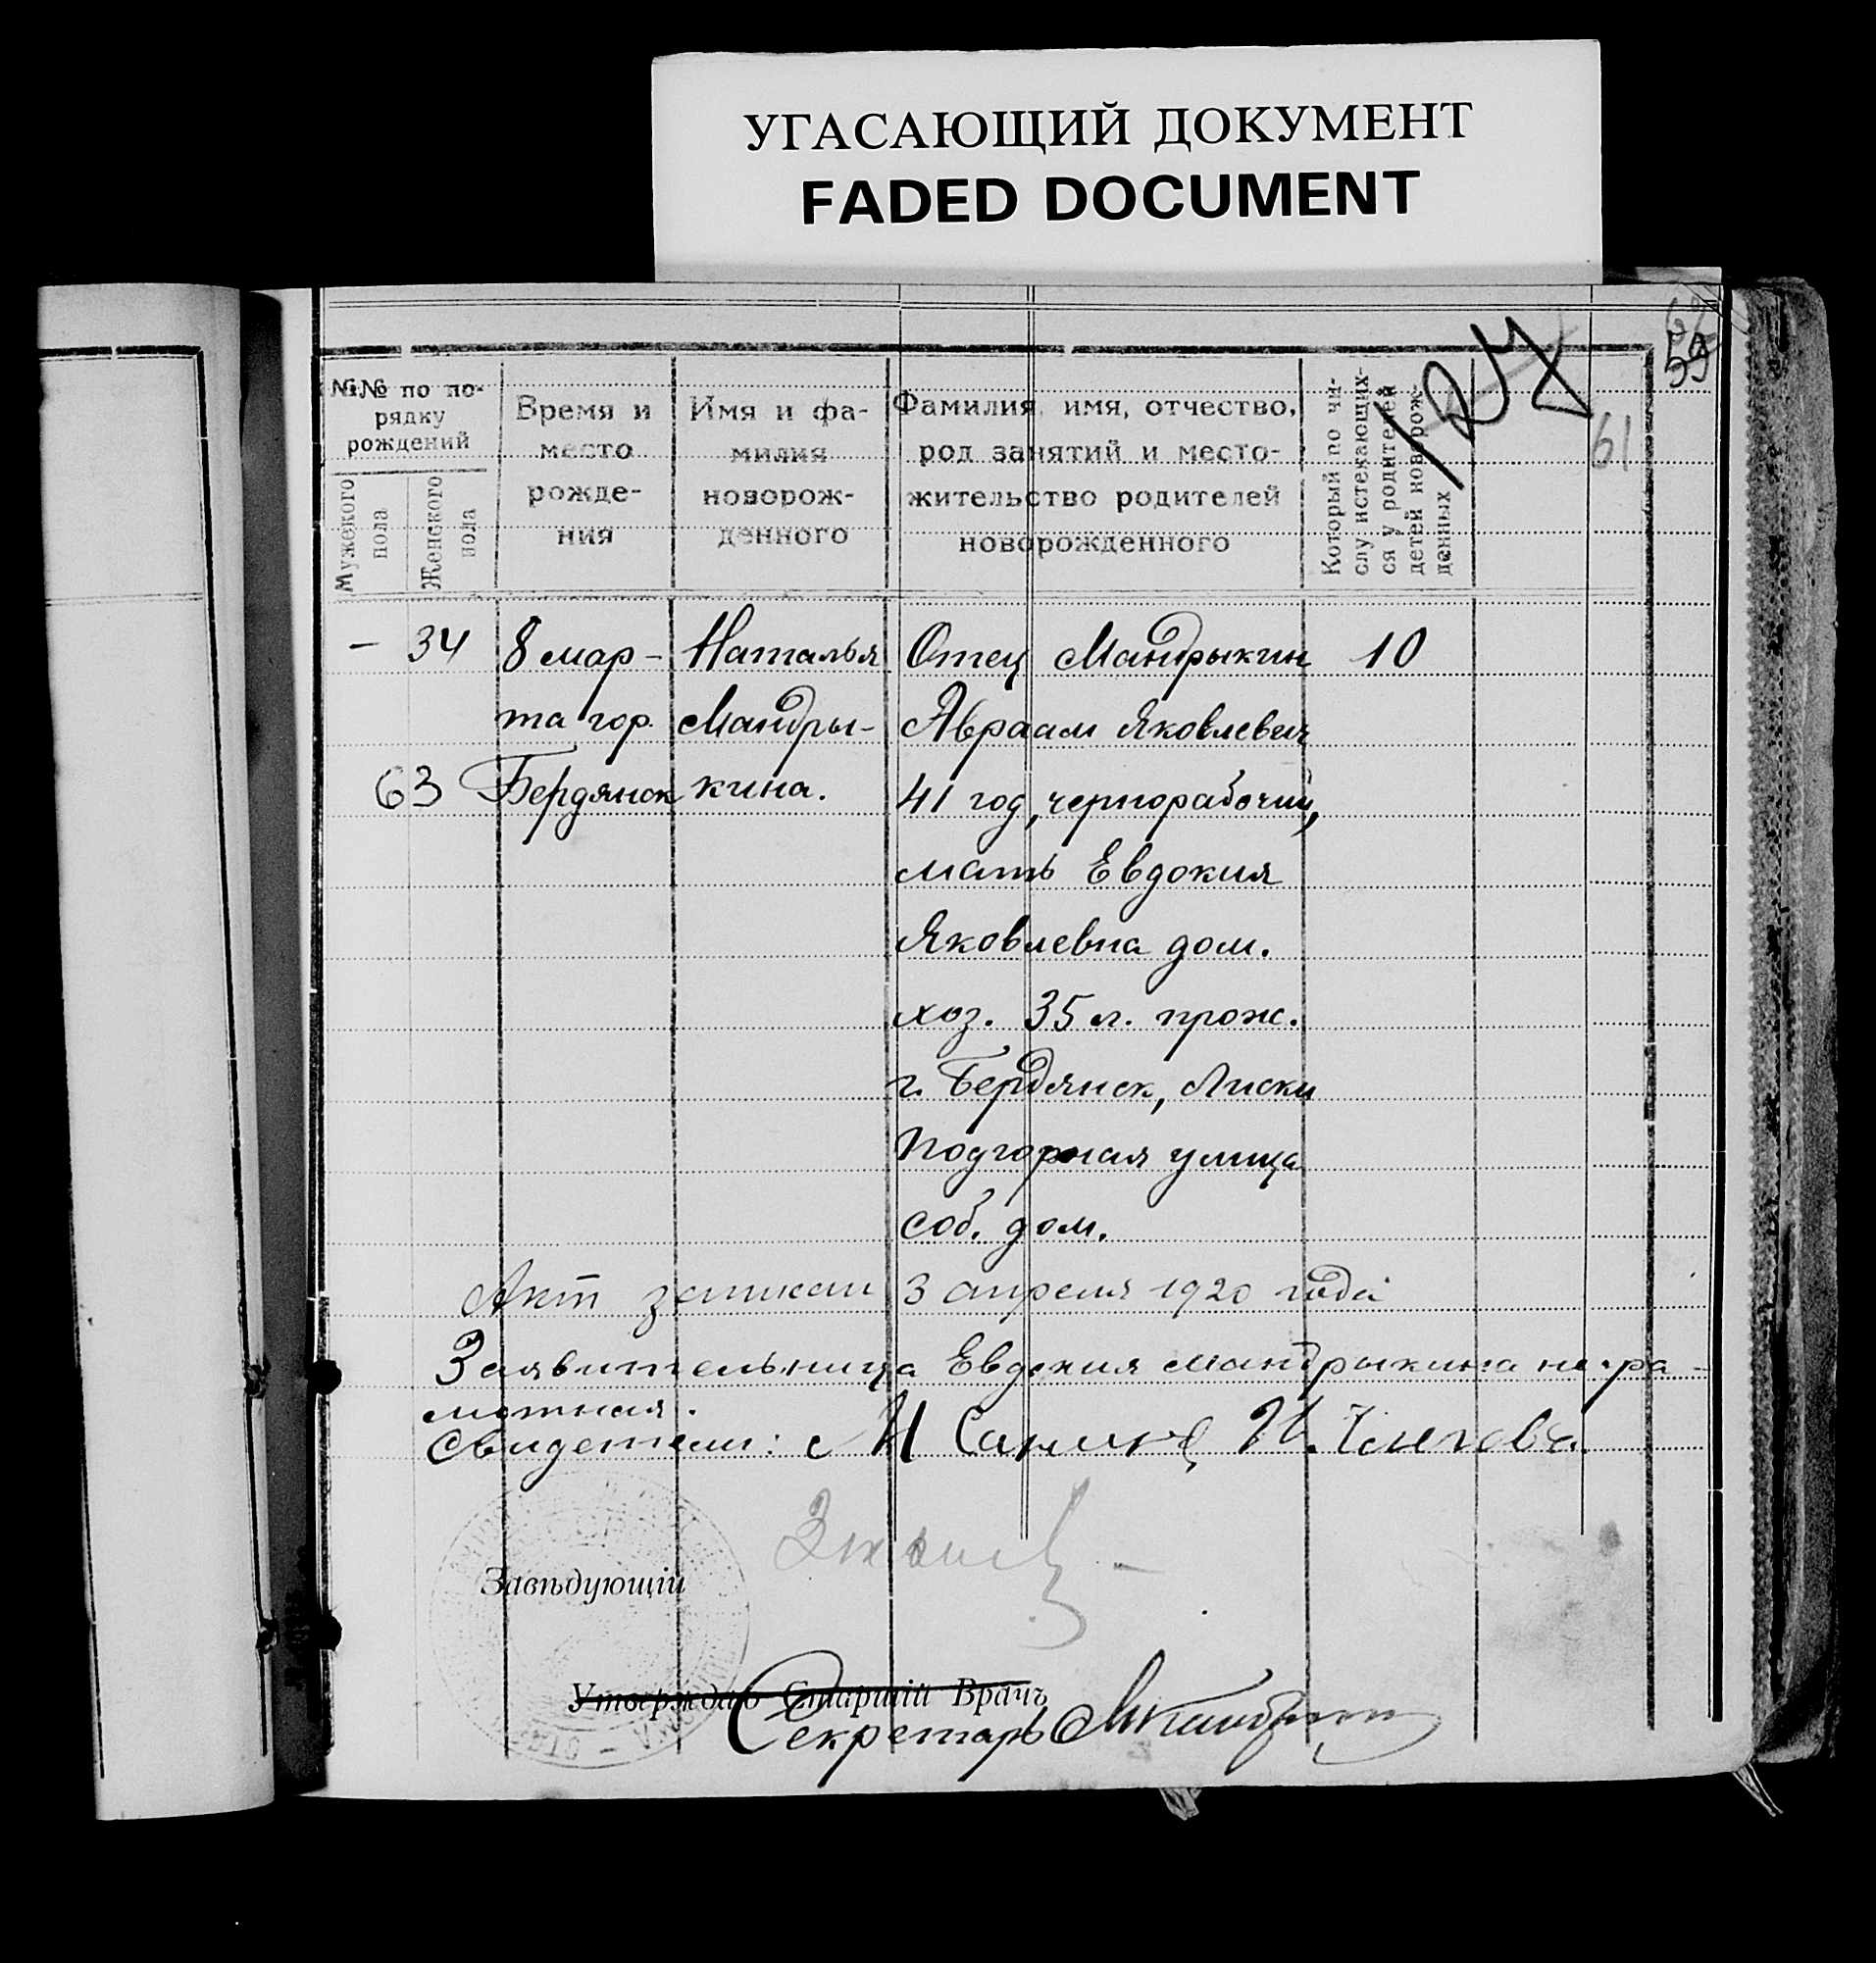 УГАСАЮЩИЙ ДОКУМЕНТ
FADED DOCUMENT
61
59
124
61
№№ по по-
рядку
рождений
Мужеского
пола
Женского
пола
Время и
место
рожде-
ния
Имя и фа-
милия
новорож-
денного
Фамилия, имя, отчество,
род занятий и место-
жительство родителей
новорожденного
Который по чи-
слу истекающих-
ся у родителей
детей новорож-
денных
— 34 8 мар- Наталья Отец Мандрыкин 10
та гор. Мандры- Авраам Яковлевич
63 Бердянск кина. 41 год, чернорабочий,
мать Евдокия
Яковлевна дом.
хоз. 35 л. прож.
г. Бердянск, Лиски
Подгорная улица
соб. дом.
Акт записан 3 апреля 1920 года
Заявительница Евдокия Мандрыкина негра-
мотная.
Свидетели: М
Завѣдующій
Утверждаю Старшій Врачъ
Секретарь